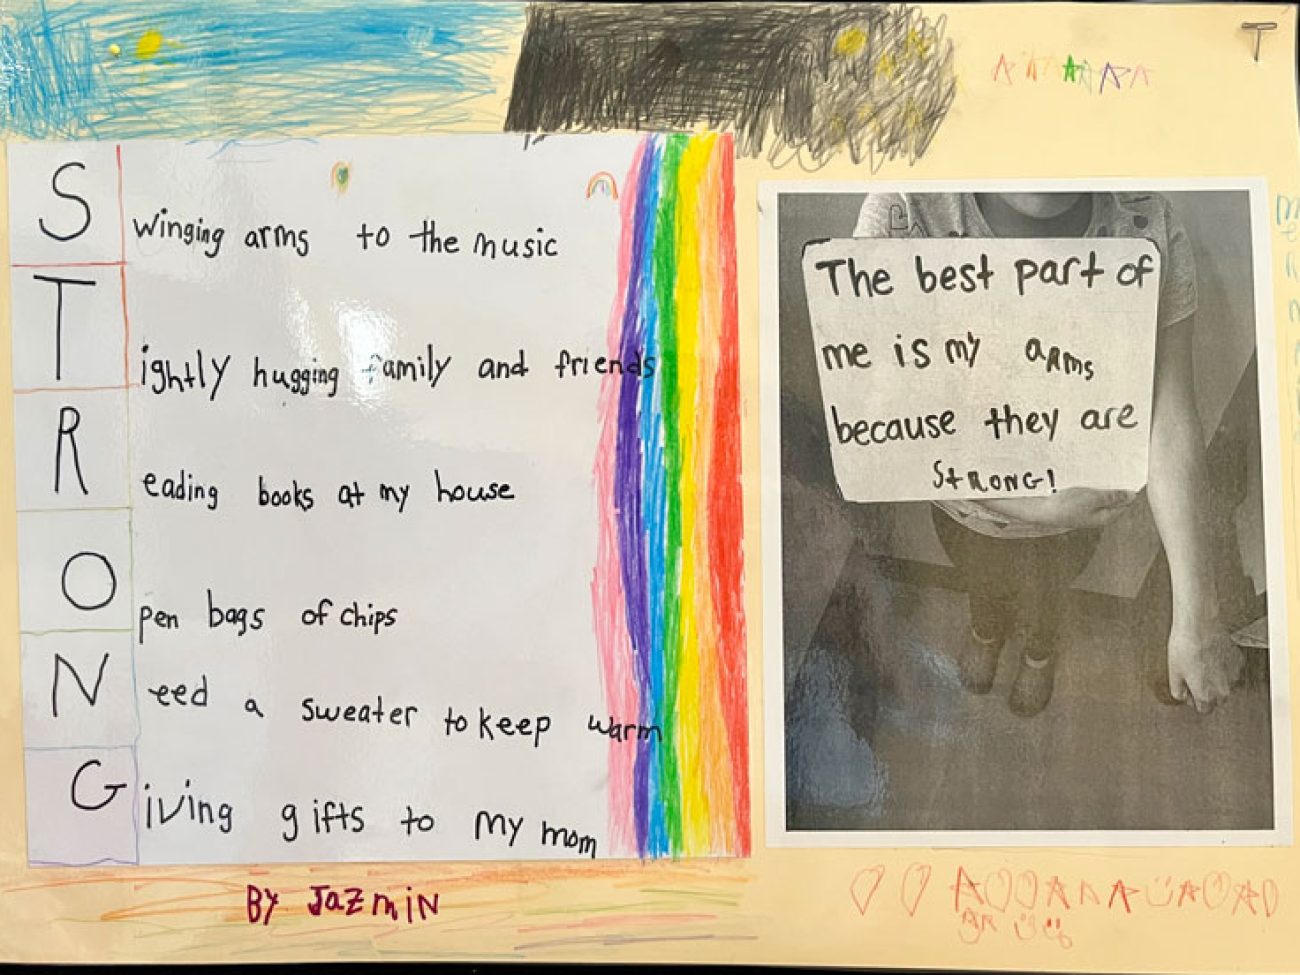 Swinging arms to the music
Tightly hugging family and friends
Reading books at my house
Open bags of chips
Need a sweater to keep warm
Giving gifts to my mom
By JazmiN
The best part of
me is my aRms
because they are
StRONG!